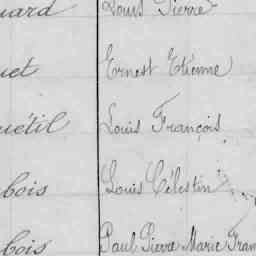 uard Louis Pierre
uet Ernest Etienne
uétil Louis François
bois Louis Célestin
bois Paul Pierre Marie Fran